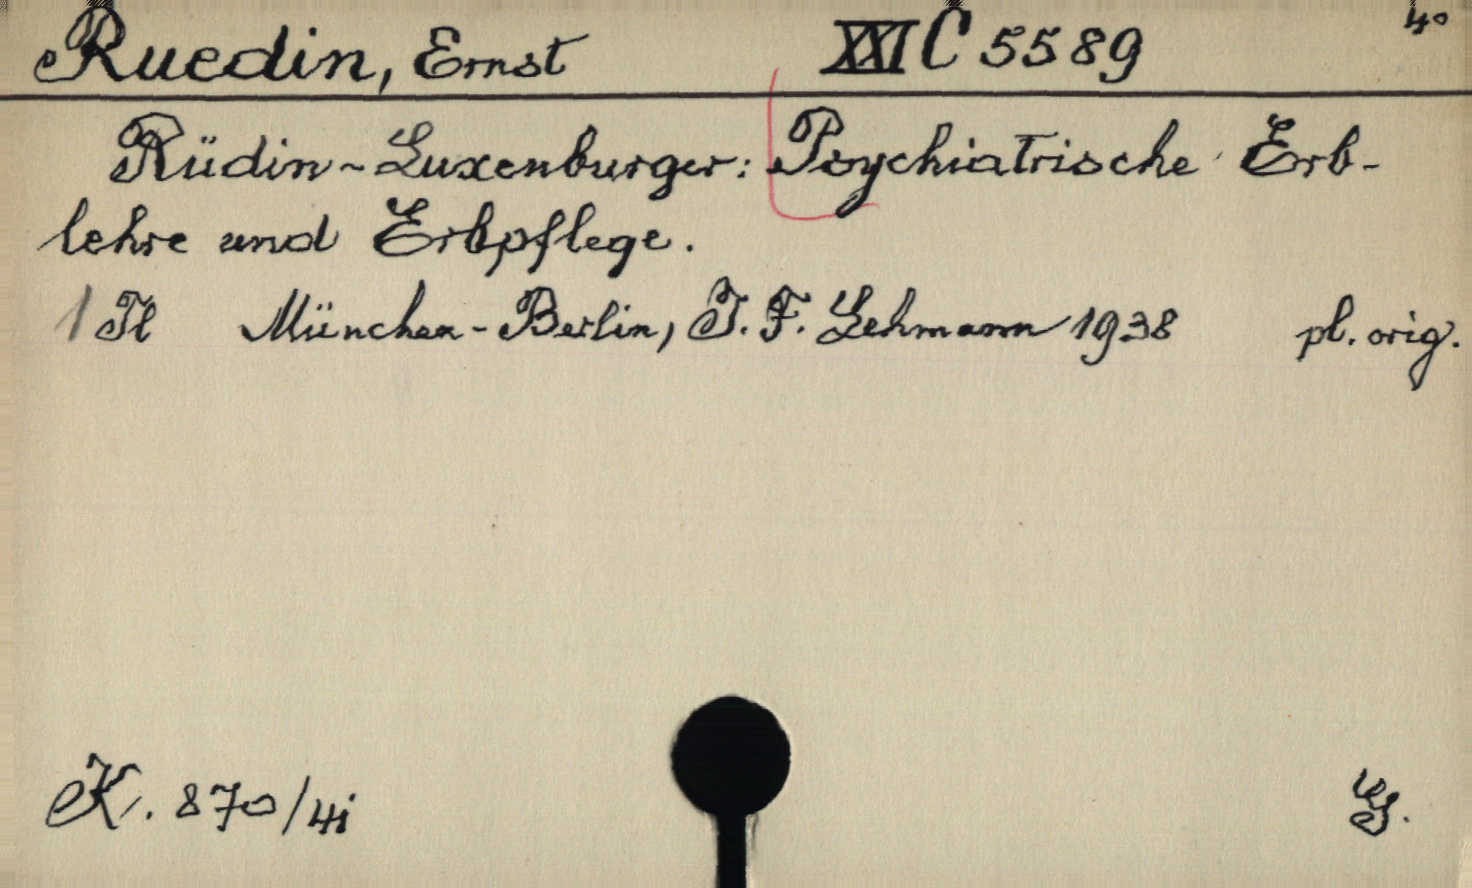 Ruedin, Ernst XXI C 5589 40
Rüdin-Luxenburger: Psychiatrische Erb-
lehre und Erbpflege.
1 Tl München-Berlin, J. F. Lehmann 1938 pl. orig.
K. 870/4i